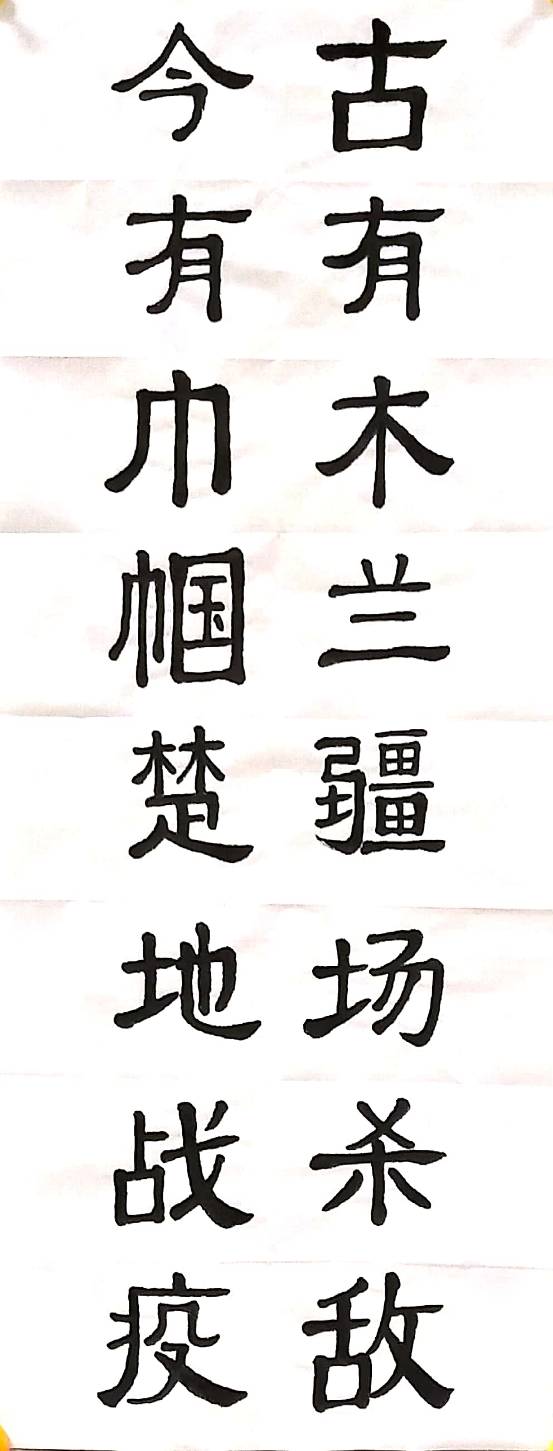 古有木兰疆场杀敌
今有巾帼楚地战疫